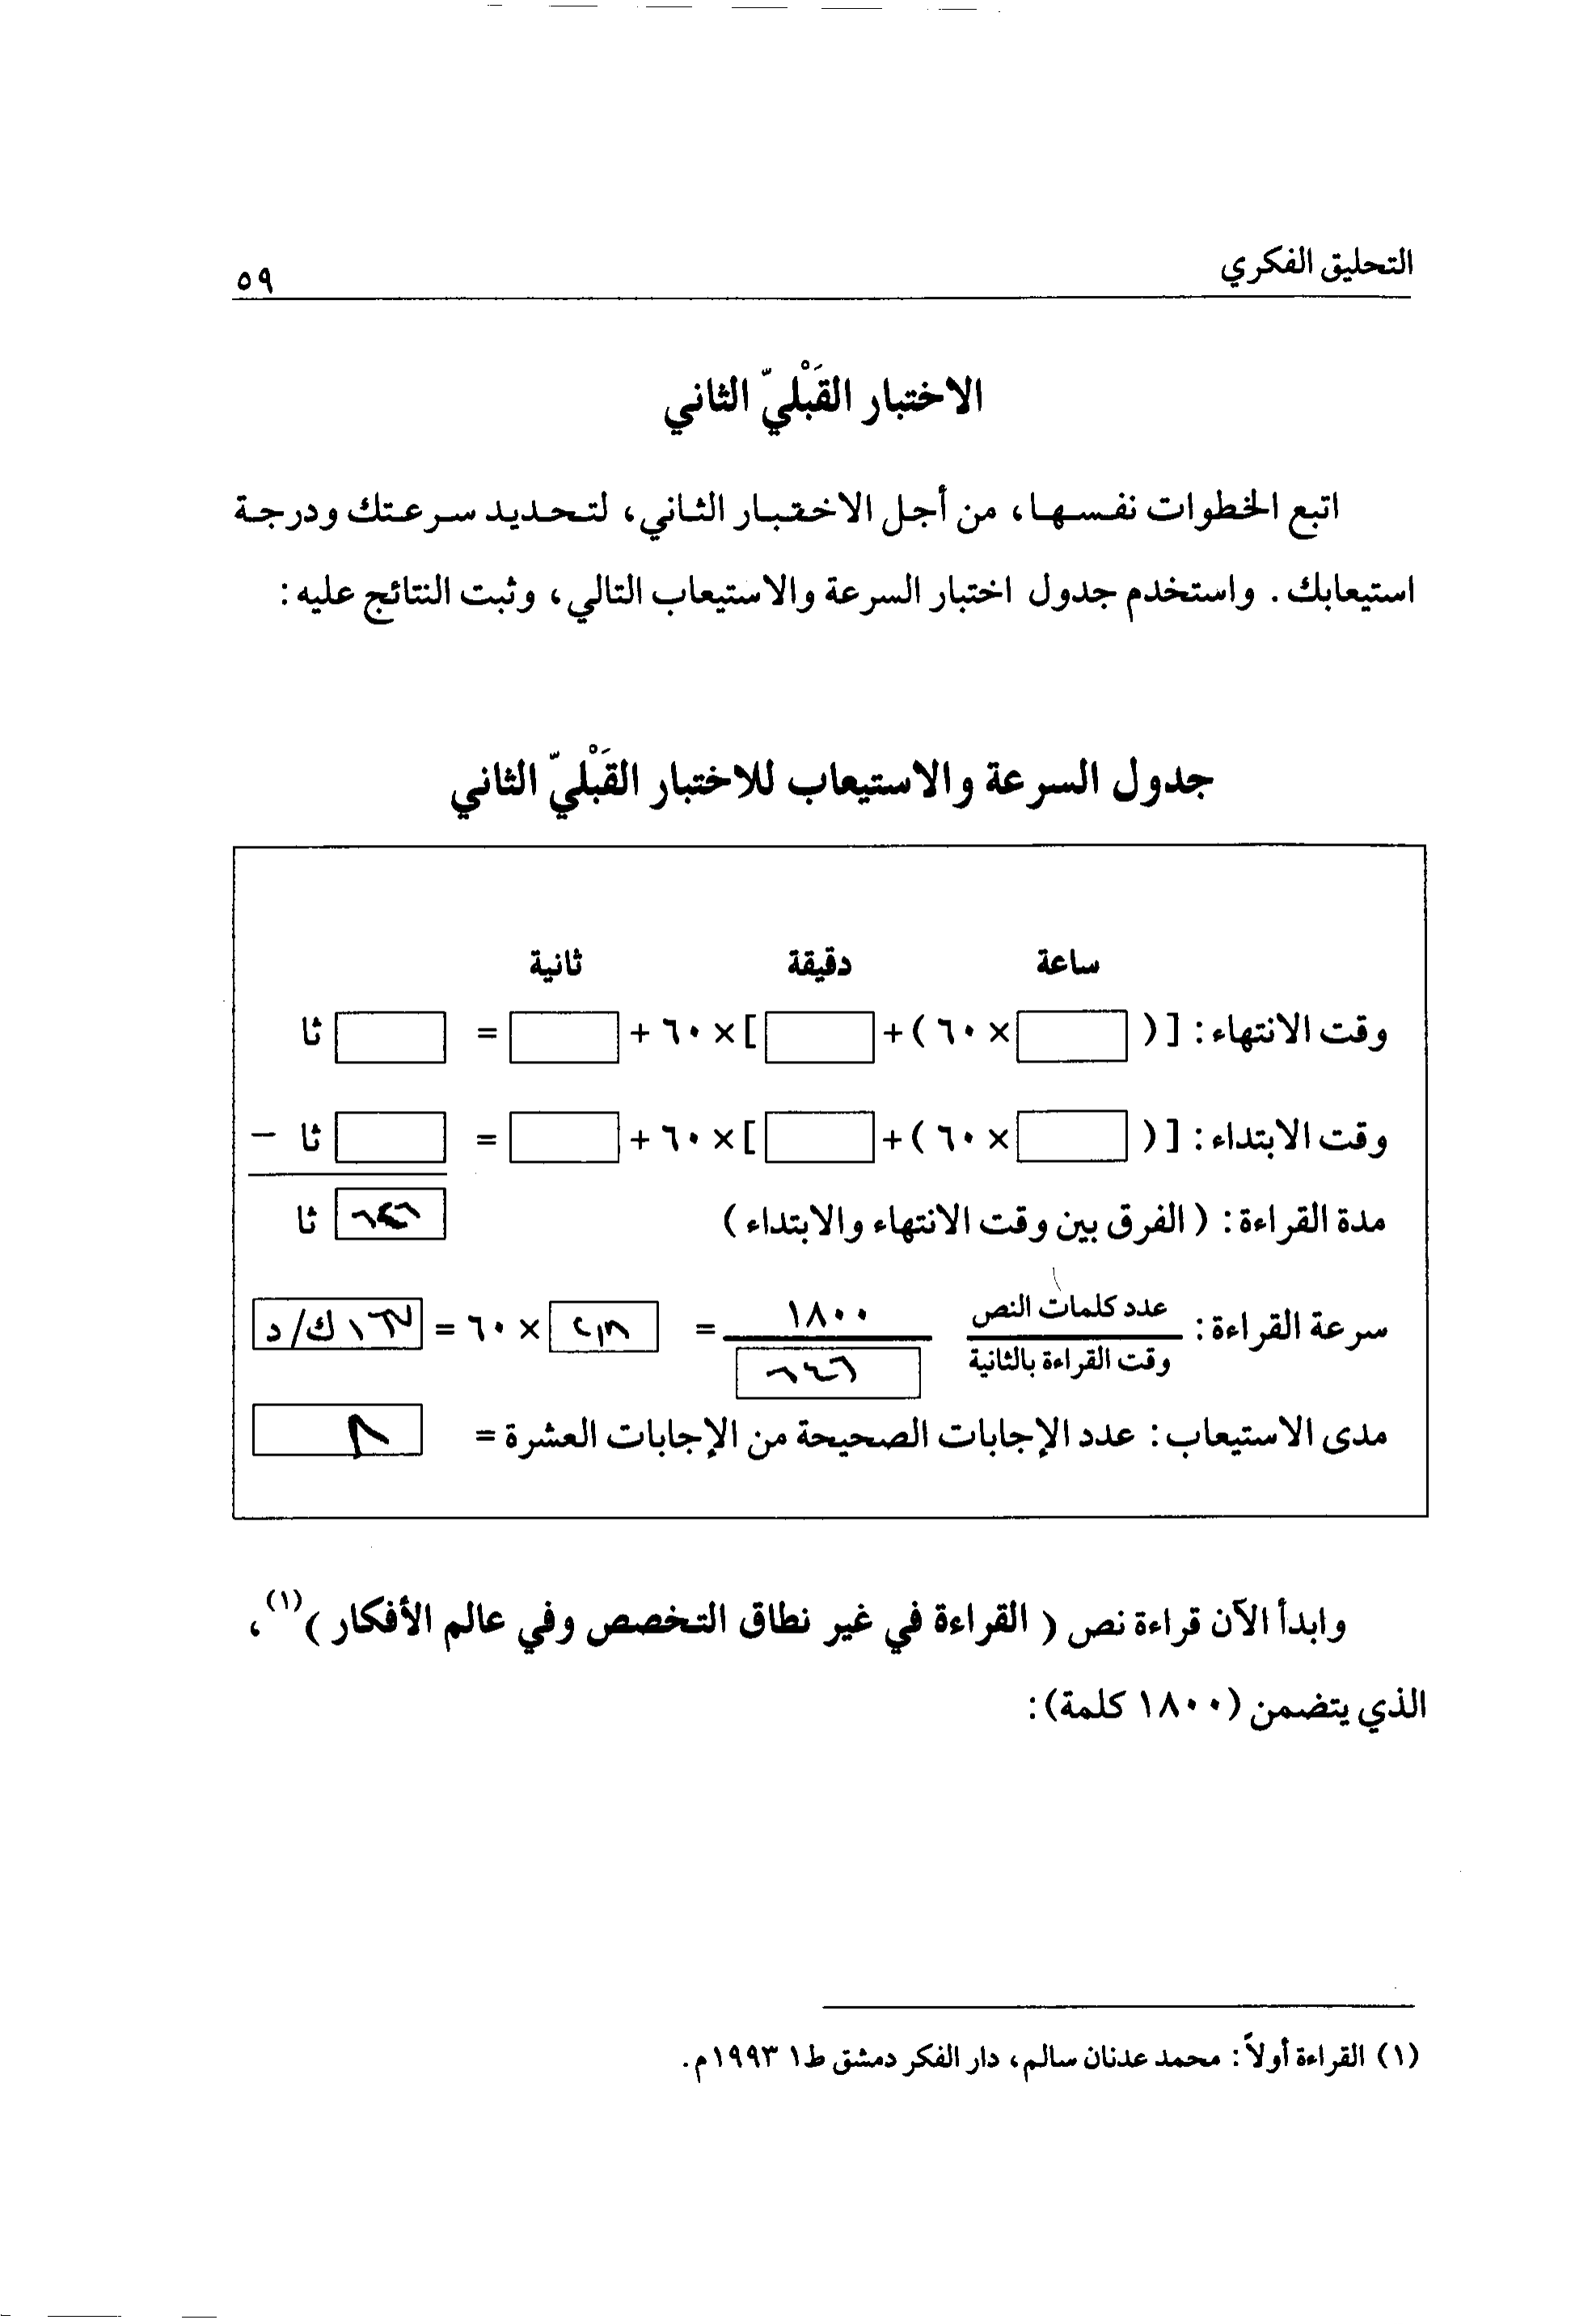 التحليق الفكري
٥٩
الاختبار القَبْليّ الثاني
اتبع الخطوات نفسها، من أجل الاختبار الثاني، لتحديد سرعتك ودرجة
استيعابك. واستخدم جدول اختبار السرعة والاستيعاب التالي، وثبت النتائج عليه:
جدول السرعة والاستيعاب للاختبار القَبْليّ الثاني
ساعة دقيقة ثانية
وقت الانتهاء: [( × ٦٠) + ] × ٦٠ + = ثا
وقت الابتداء: [( × ٦٠) + ] × ٦٠ + = ثا –
مدة القراءة: (الفرق بين وقت الانتهاء والابتداء) ٦٤٦ ثا
سرعة القراءة: عدد كلمات النص ١٨٠٠ = × ٦٠ = ك/د
وقت القراءة بالثانية ٦٤٦
مدى الاستيعاب: عدد الإجابات الصحيحة من الإجابات العشرة =
وابدأ الآن قراءة نص (القراءة في غير نطاق التخصص وفي عالم الأفكار)(١)،
الذي يتضمن (١٨٠٠ كلمة):
(١) القراءة أولاً: محمد عدنان سالم، دار الفكر دمشق ط١ ١٩٩٣م.